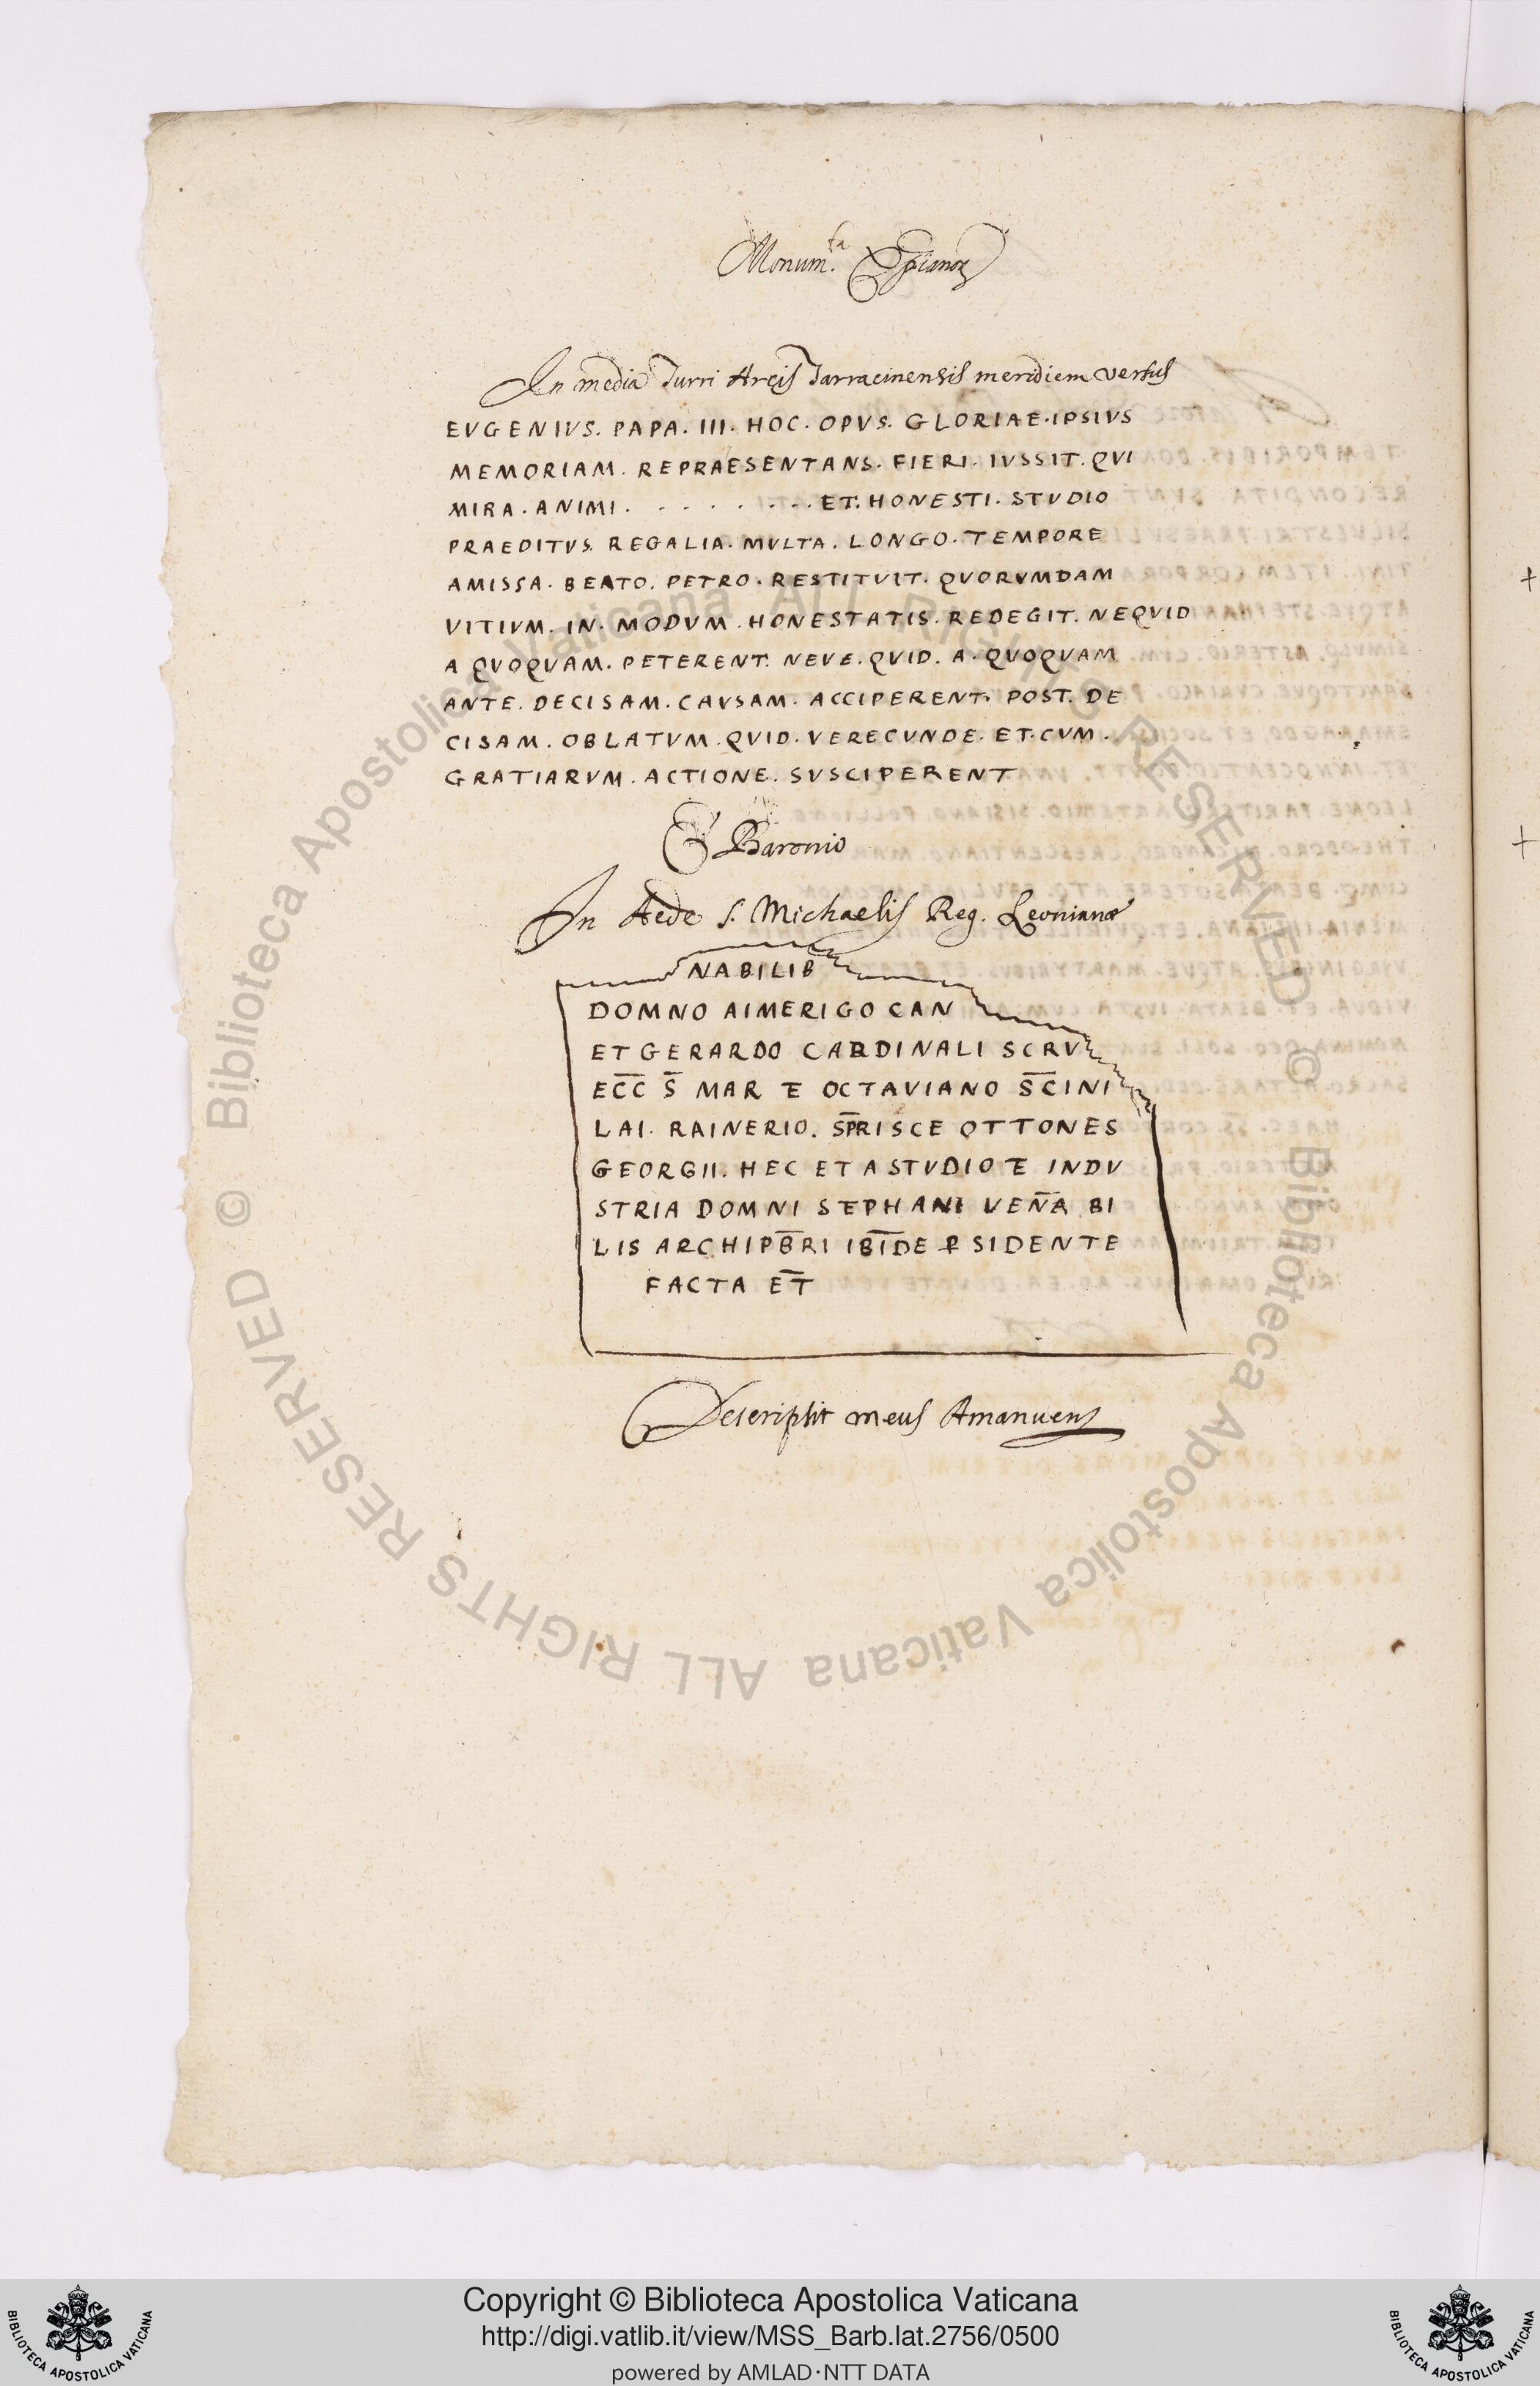 Monum.ta
In media Turri Arcis Tarracinensis meridiem versus
EVGENIVS. PAPA. III. HOC. OPVS. GLORIAE. IPSIVS
MEMORIAM. REPRAESENTANS. FIERI. IVSSIT. QVI
MIRA. ANIMI. . . . . . . . ET. HONESTI. STVDIO
PRAEDITVS. REGALIA. MVLTA. LONGO. TEMPORE
AMISSA. BEATO. PETRO. RESTITVIT. QVORVMDAM
VITIVM. IN. MODVM. HONESTATIS. REDEGIT. NEQVID
A QVOQVAM. PETERENT. NEVE. QVID. A. QVOQVAM
ANTE. DECISAM. CAVSAM. ACCIPERENT. POST. DE
CISAM. OBLATVM. QVID. VERECVNDE. ET. CVM.
GRATIARVM. ACTIONE. SVSCIPERENT
Baronio
In Aede S. Michaelis Reg. Leonianæ
NABILIB
DOMNO AIMERIGO CAN
ET GERARDO CARDINALI SCRV
EC̅C̅ S̅ MAR E OCTAVIANO S̅C̅INI
LAI. RAINERIO. SP̅RISCE OTTONES
GEORGII. HEC ET A STVDIO E INDV
STRIA DOMNI STEPHANI VEN̅A BI
LIS ARCHIPB̅RI IBI̅DE P SIDENTE
FACTA ET̅
Descripsit meus Amanuens
+
+
Biblioteca Apostolica Vaticana ALL RIGHTS RESERVED ©
Biblioteca Apostolica Vaticana ALL RIGHTS RESERVED ©
Copyright © Biblioteca Apostolica Vaticana
http://digi.vatlib.it/view/MSS_Barb.lat.2756/0500
powered by AMLAD·NTT DATA
BIBLIOTECA APOSTOLICA VATICANA
BIBLIOTECA APOSTOLICA VATICANA